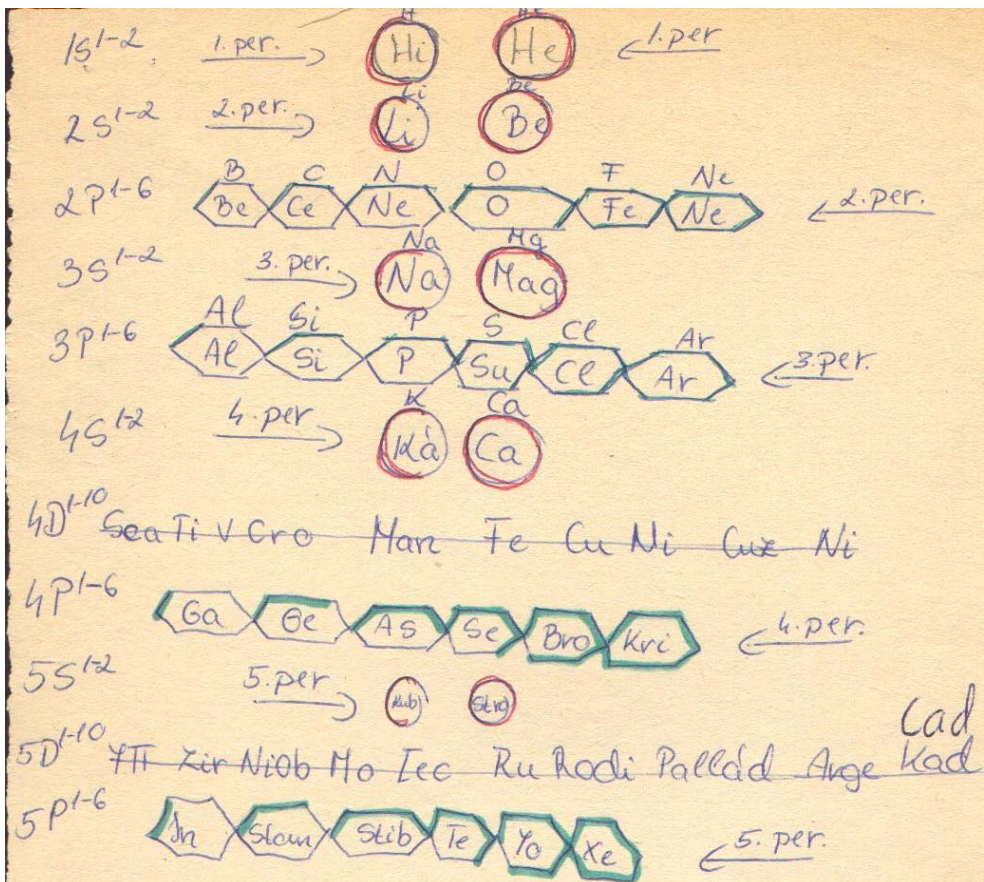 H He
1S1-2 1.per. Hi He 1.per
Li Be
2S1-2 2.per. Li Be
B C N O F Ne
2P1-6 Be Ce Ne O Fe Ne 2.per.
Na Mg
3S1-2 3.per. Na Mag
Al Si P S Cl Ar
3P1-6 Al Si P Su Cl Ar 3.per.
K Ca
4S1-2 4.per Ká Ca
4D1-10 Sca Ti V Cro Man Fe Cu Ni Cuz Ni
4P1-6 Ga Ge As Se Bro Kri 4.per.
5S1-2 5.per Rubi Stro
Cad
5D1-10 Zir Niob Mo Tec Ru Rodi Pallád Arge Kad
5P1-6 In Stan Stib Te Yo Xe 5.per.